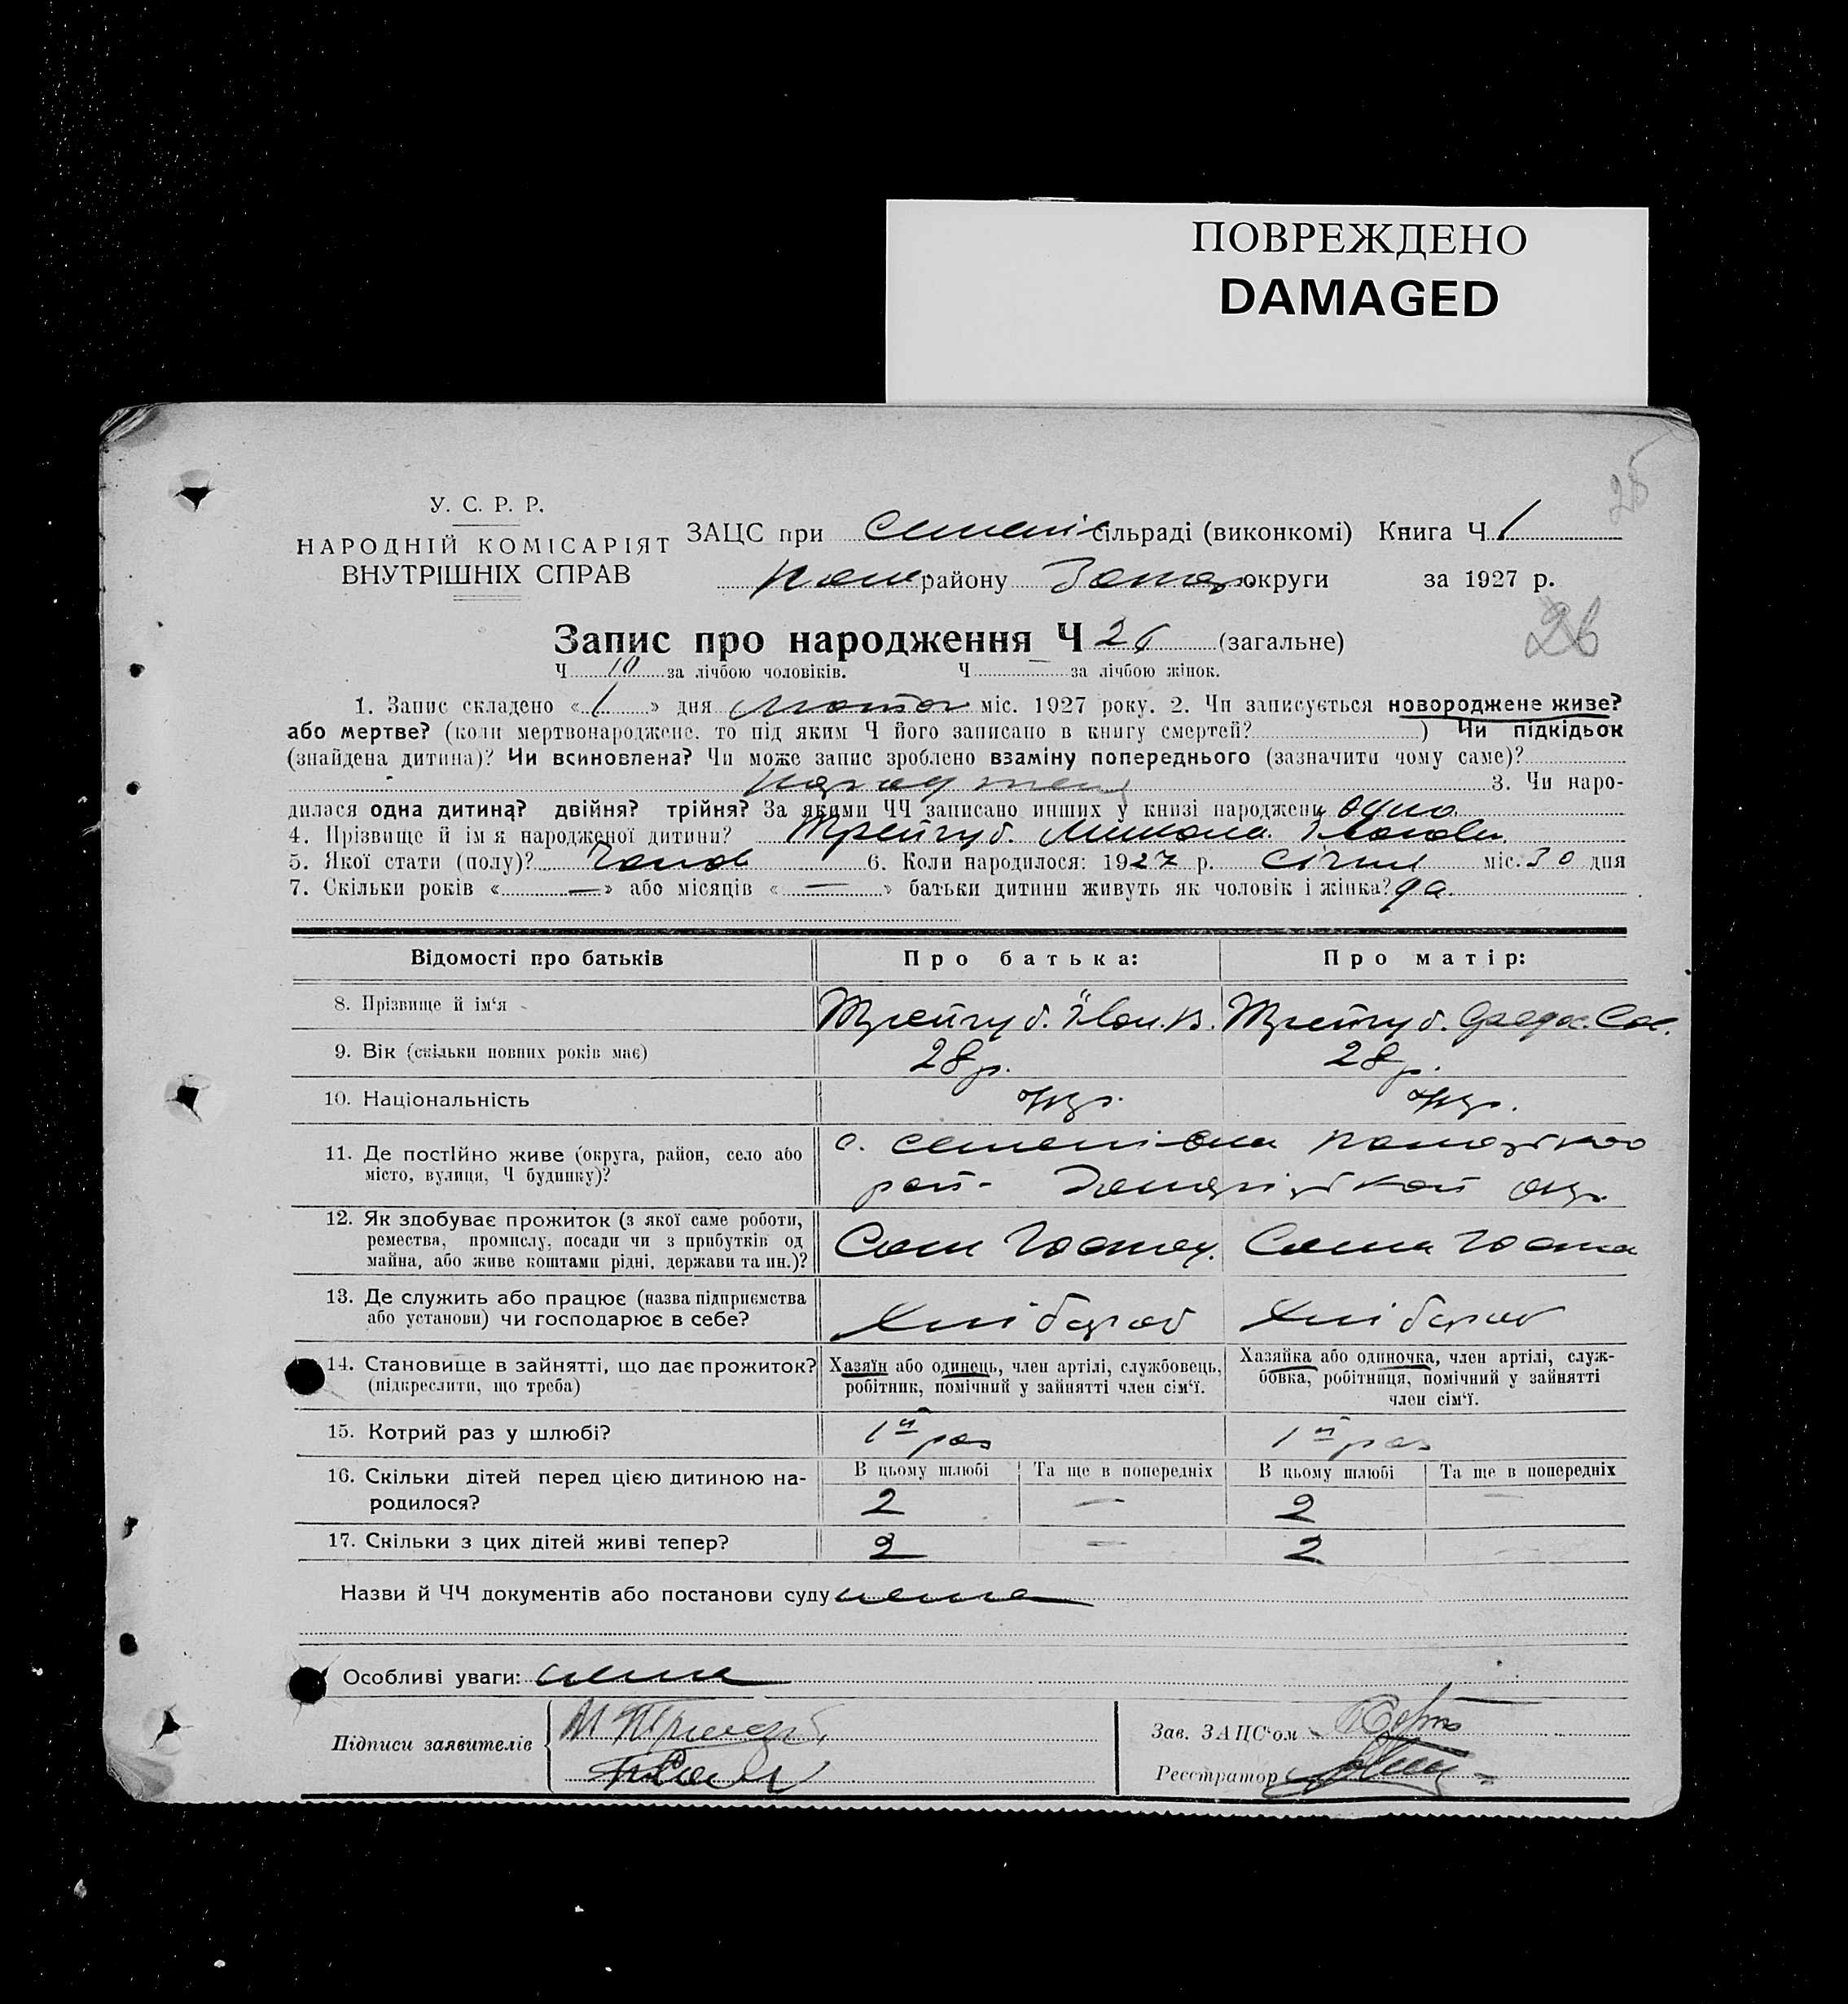 ПОВРЕЖДЕНО
DAMAGED
25
У. С. Р. Р.
НАРОДНІЙ КОМІСАРІЯТ
ВНУТРІШНІХ СПРАВ
ЗАЦС при Семенів сільраді (виконкомі) Книга Ч 1
району округи за 1927 р.
26
Запис про народження Ч 26 (загальне)
Ч 10 за лічбою чоловіків. Ч — за лічбою жінок.
1. Запис складено « 1 » дня лютого міс. 1927 року. 2. Чи записується новороджене живе?
або мертве? (коли мертвонароджене, то під яким Ч його записано в книгу смертей? ) Чи підкідьок
(знайдена дитина)? Чи всиновлена? Чи може запис зроблено взаміну попереднього (зазначити чому саме)?
3. Чи наро-
дилася одна дитина? двійня? трійня? За якими ЧЧ записано инших у книзі народжень одно
4. Прізвище й імя народженої дитини? Микола
5. Якої стати (полу)? Чолов 6. Коли народилося: 1927 р. Січня міс. 30 дня
7. Скільки років « — » або місяців « — » батьки дитини живуть як чоловік і жінка? да
Відомості про батьків Про батька: Про матір:
8. Прізвище й ім'я
9. Вік (скільки повних років має) 28 р. 28 р.
10. Національність Укр. Укр.
11. Де постійно живе (округа, район, село або
місто, вулиця, Ч будинку)?
с. Семенівка
рай- окр.
12. Як здобуває прожиток (з якої саме роботи,
ремества, промислу, посади чи з прибутків од
майна, або живе коштами рідні, держави та ин.)?
Сам Сама
13. Де служить або працює (назва підприємства
або установи) чи господарює в себе?
Хлібороб Хлібороб
14. Становище в зайнятті, що дає прожиток?
(підкреслити, що треба)
Хазяїн або одинець, член артілі, службовець,
робітник, помічний у зайнятті член сім'ї.
Хазяйка або одиночка, член артілі, служ-
бовка, робітниця, помічний у зайнятті
член сім'ї.
15. Котрий раз у шлюбі? 1й раз 1й раз
16. Скільки дітей перед цією дитиною на-
родилося?
В цьому шлюбі Та ще в попередніх В цьому шлюбі Та ще в попередніх
2 — 2 —
17. Скільки з цих дітей живі тепер? 2 — 2 —
Назви й ЧЧ документів або постанови суду нема
Особливі уваги: нема
Підписи заявителів
Зав. ЗАЦС'ом
Реєстратор